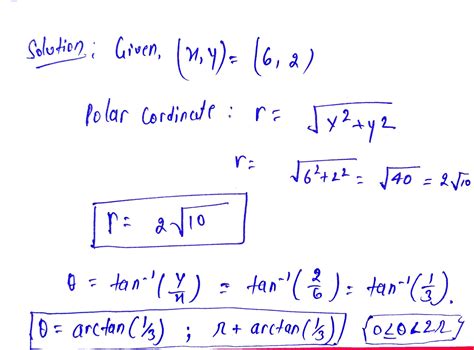 Solution : Given, (x,y) = (6, 2)
Polar Cordinate : r = √x²+y²
r = √6²+2² = √40 = 2√10
r = 2√10
θ = tan⁻¹(y/x) = tan⁻¹(2/6) = tan⁻¹(1/3).
θ = arctan(1/3) ; π + arctan(1/3) {0≤θ<2π}